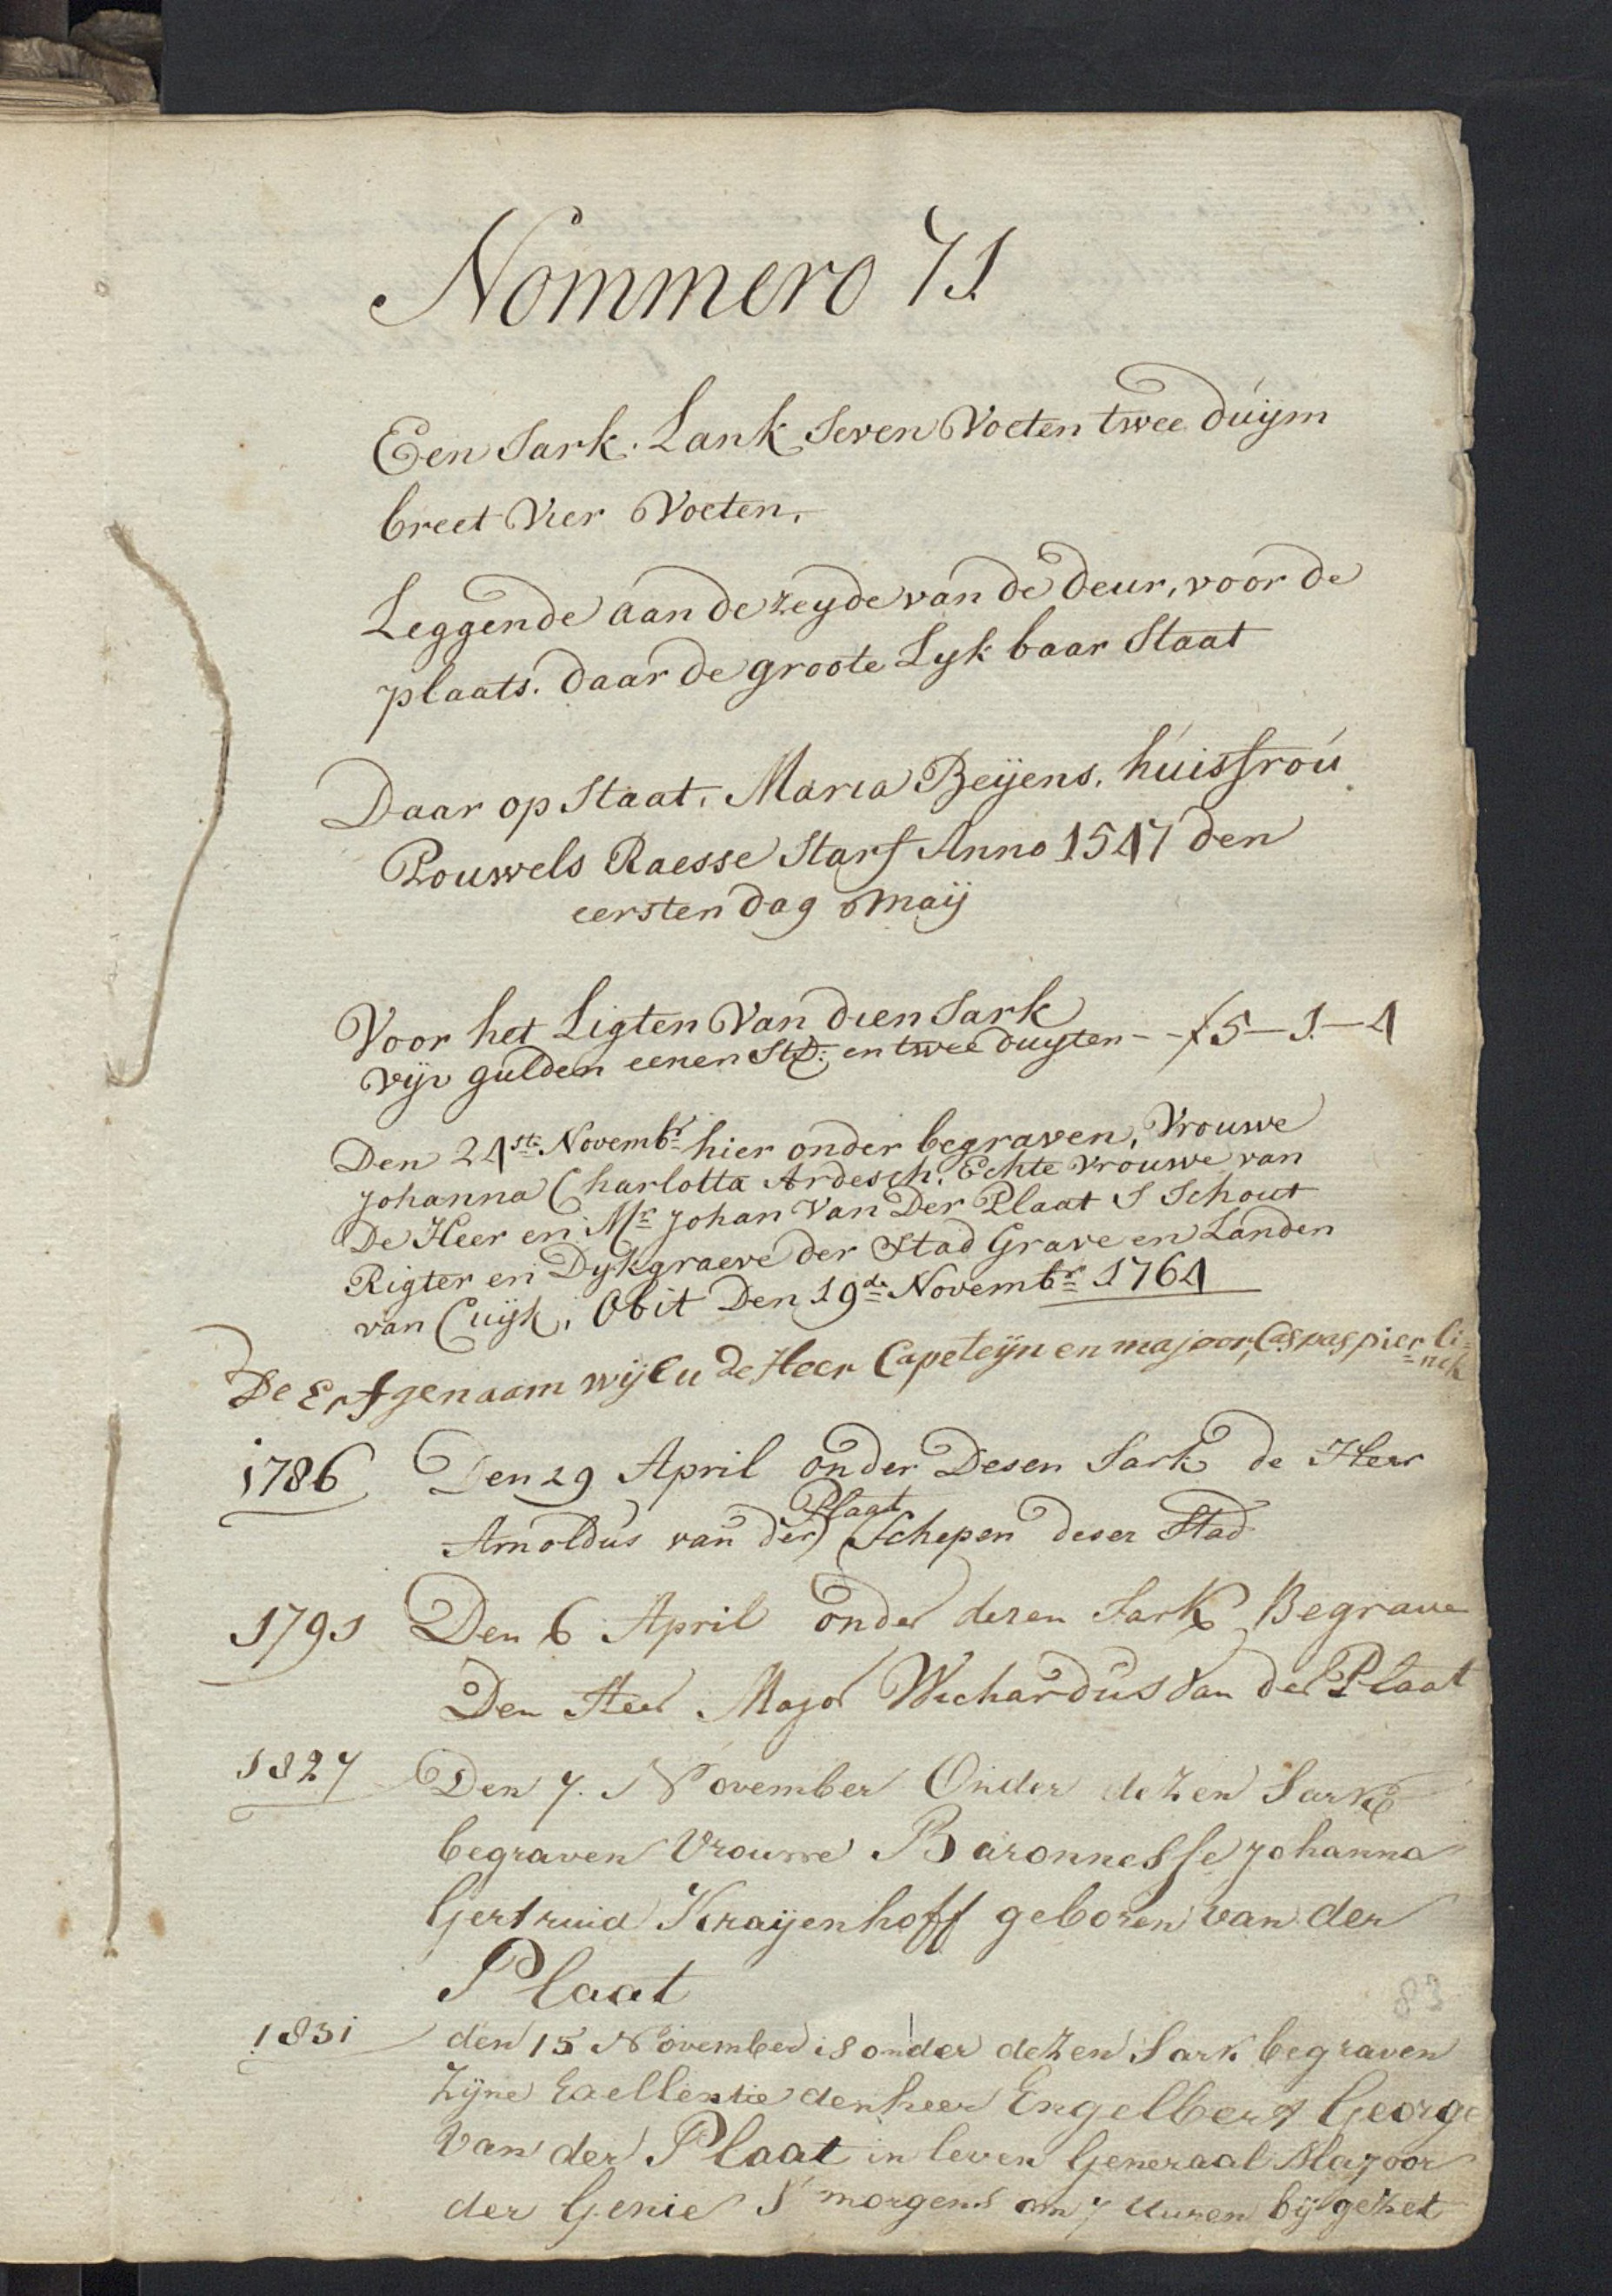 Nommero 71
Een Sark. Lank Seven Voeten twee duijm
breet Vier Voeten,
Leggende aan de zeyde van de deur, voor de
plaats. daar de groote Lyk baar Staat
Daar op Staat, Maria Beijens, huisfrou
Pouwels Raesse Starf Anno 1547 den
eersten dag Maij
Voor het Ligten Van dien Sark
vijv gulden eenen St: en twee duyten - - f 5 - 1 - 4
Den 24ste Novembr hier onder begraven, Vrouwe
Johanna Charlotta Ardesch. Echte Vrouwe van
De Heer en Mr Johan Van Der Plaat S Schout
Rigter en Dykgraeve der Stad Grave en Landen
van Cuijk, Obit Den 19de Novembr 1764
De Erfgenaam wijlu de Heer Capeteijn en majoor, Caspas pierli=
=nck
1786 Den 29 April onder Desen Sark de Heer
Arnoldus van der Plaat Schepen deser Stad
1791 Den 6 April onder dezen Sark Begrave
Den Heer Major Wichardus van der Plaat
1827 Den 7. November Onder dezen Sark
begraven Vrouwe Baronnesse Johanna
Gertruid Kraijenhoff geboren van der
Plaat
1831 den 15 November is onder dezen Sark begraven
Zijne Exellentie den heer Engelbert George
Van der Plaat in leven Generaal Majoor
der Genie S' morgens om 7 Uuren bijgezet
83